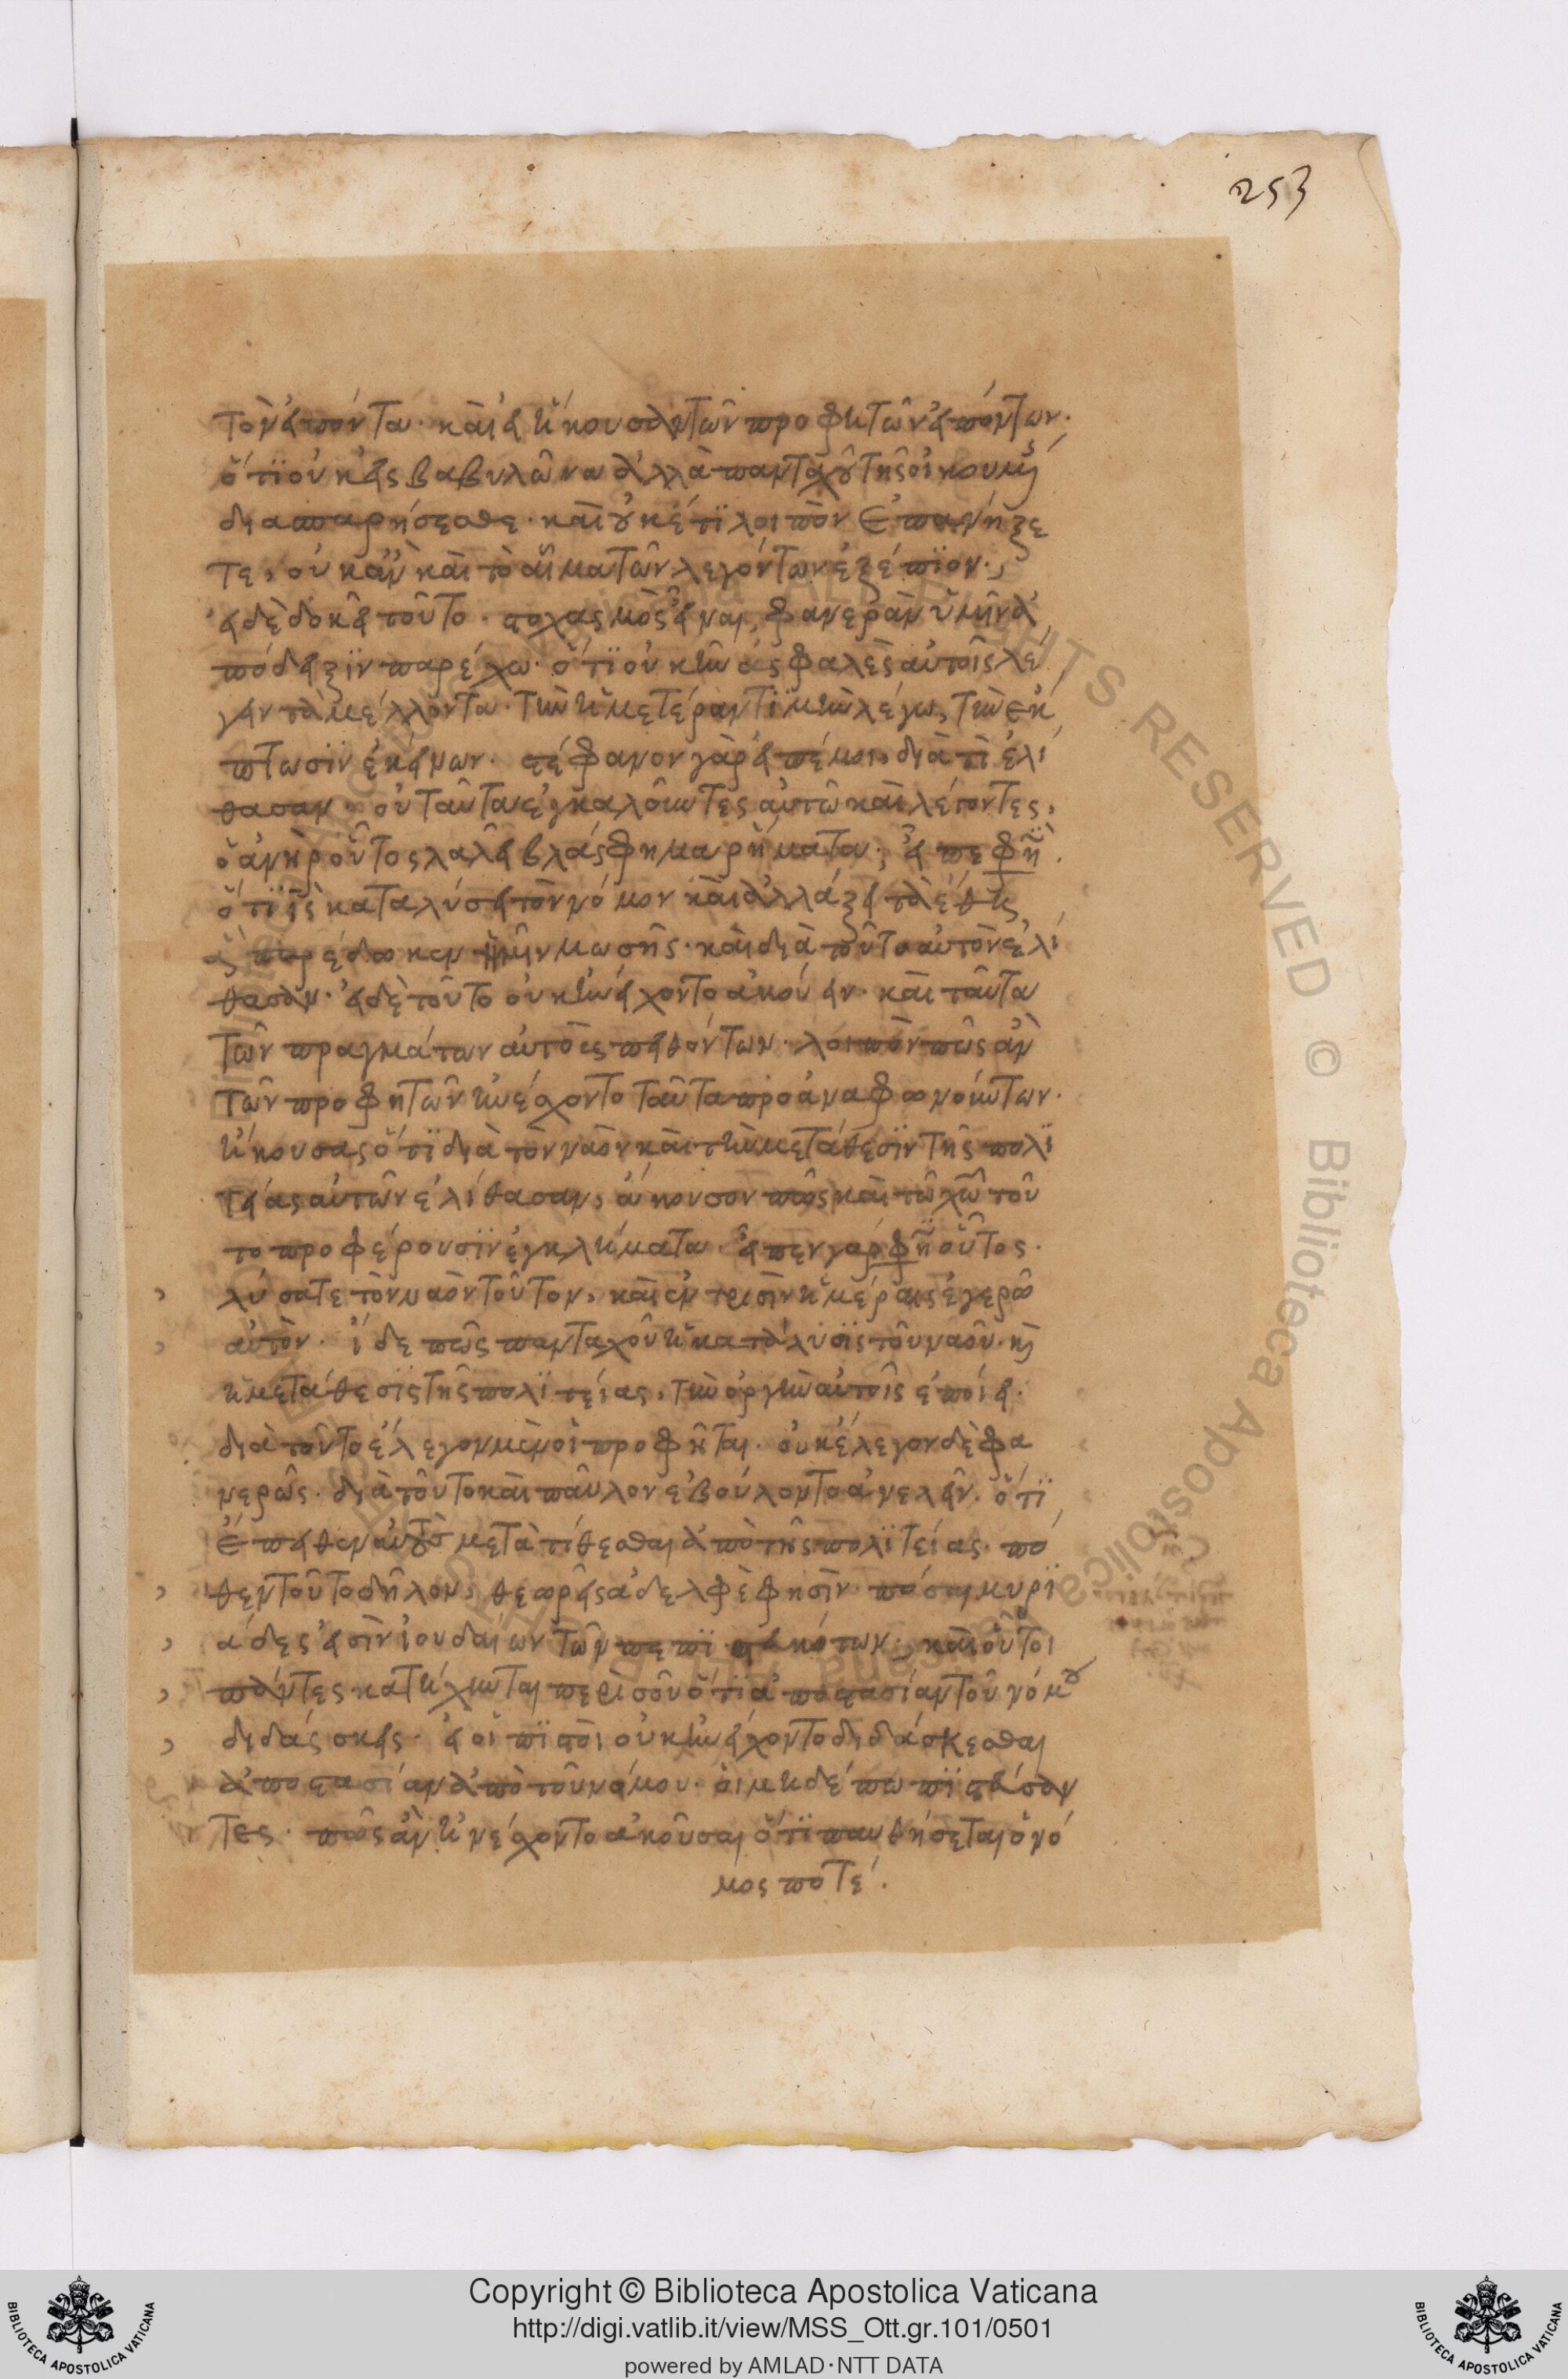 253
τὸν εἰπόντα· καὶ εἰ ἤκουσαν τῶν προφητῶν εἰπόντων·
ὅτι οὐκ εἰς βαβυλῶνα ἀλλὰ πανταχοῦ τῆς οἰκουμέ
διασπαρήσεσθε· καὶ οὐκέτι λοιπὸν ἐπανήξε
τε, οὐκ ἂν καὶ τὸ αἷμα τῶν λεγόντων ἐξέπιον·,
εἰ δὲ δοκεῖ τοῦτο στοχασμὸς εἶναι, φανερὰν ὑμῖν ἀ
πόδειξιν παρέχω· ὅτι οὐκ ἦν ἀσφαλὲς αὐτοῖς λέ
γειν τὰ μέλλοντα· τὴν ἡμετέραν τιμὴν λέγω, τὴν ἔκ
πτωσιν ἐκείνων· στέφανον γὰρ εἰπέ μοι, διὰ τί ἐλί
θασαν· οὐ ταῦτα ἐγκαλοῦντες αὐτῶ καὶ λέγοντες,
ὁ ἀνὴρ οὗτος λαλεῖ βλάσφημα ρήματα·, εἶπε φη.
ὅτι ις καταλύσει τὸν νόμον καὶ ἀλλάξει τὰ ἔθη
ἃ παρέδωκεν ἡμῖν μωσῆς· καὶ διὰ τοῦτο αὐτὸν ἐλί
θασαν· εἰ δὲ τοῦτο οὐκ ἠνείχοντο ἀκούειν· καὶ ταῦτα
τῶν πραγμάτων αὐτοὺς πειθόντων· λοιπὸν πῶς ἂν
τῶν προφητῶν ἠνέσχοντο ταῦτα προαναφωνούντων·
ἤκουσας ὅτι διὰ τὸν ναὸν καὶ τὴν μετάθεσιν τῆς πολι
τείας αὐτῶν ἐλίθασαν, ἄκουσον πῶς καὶ τῶ χω τοῦ
το προφέρουσιν ἐγκλήματα· εἶπεν γάρ φη οὗτος·
λύσατε τὸν ναὸν τοῦτον, καὶ ἐν τρισὶν ἡμέραις ἐγερῶ
αὐτόν· ἴδε πῶς πανταχοῦ ἡ κατάλυσις τοῦ ναοῦ· κὶ
ἡ μετάθεσις τῆς πολιτείας, τὴν ὀργὴν αὐτοῖς ἐποίει·
διὰ τοῦτο ἔλεγον μὲν οἱ προφῆται· οὐκ ἔλεγον δὲ φα
νερῶς· διὰ τοῦτο καὶ παῦλον ἐβούλοντο ἀνελεῖν· ὅτι
ἔπειθεν αὐτοὺς μετατίθεσθαι ἀπὸ τῆς πολιτείας· πό
θεν τοῦτο δῆλον, θεωρεῖς ἀδελφὲ φησὶν· πόσαι μυρι
άδες εἰσὶν ἰουδαίων τῶν πεπιστευκότων·, καὶ οὗτοι
πάντες κατήχηνται περὶ σοῦ ὅτι ἀποστασίαν τοῦ νόμου
διδάσκεις· εἰ οἱ πιστοὶ οὐκ ἠνείχοντο διδάσκεσθαι
ἀποστασίαν ἀπὸ τοῦ νόμου· οἱ μηδέπω πιστεύσαν
τες· πῶς ἂν ἠνέσχοντο ἀκοῦσαι ὅτι παυθήσεται ὁ νό
μος ποτέ·
Copyright © Biblioteca Apostolica Vaticana
http://digi.vatlib.it/view/MSS_Ott.gr.101/0501
powered by AMLAD·NTT DATA